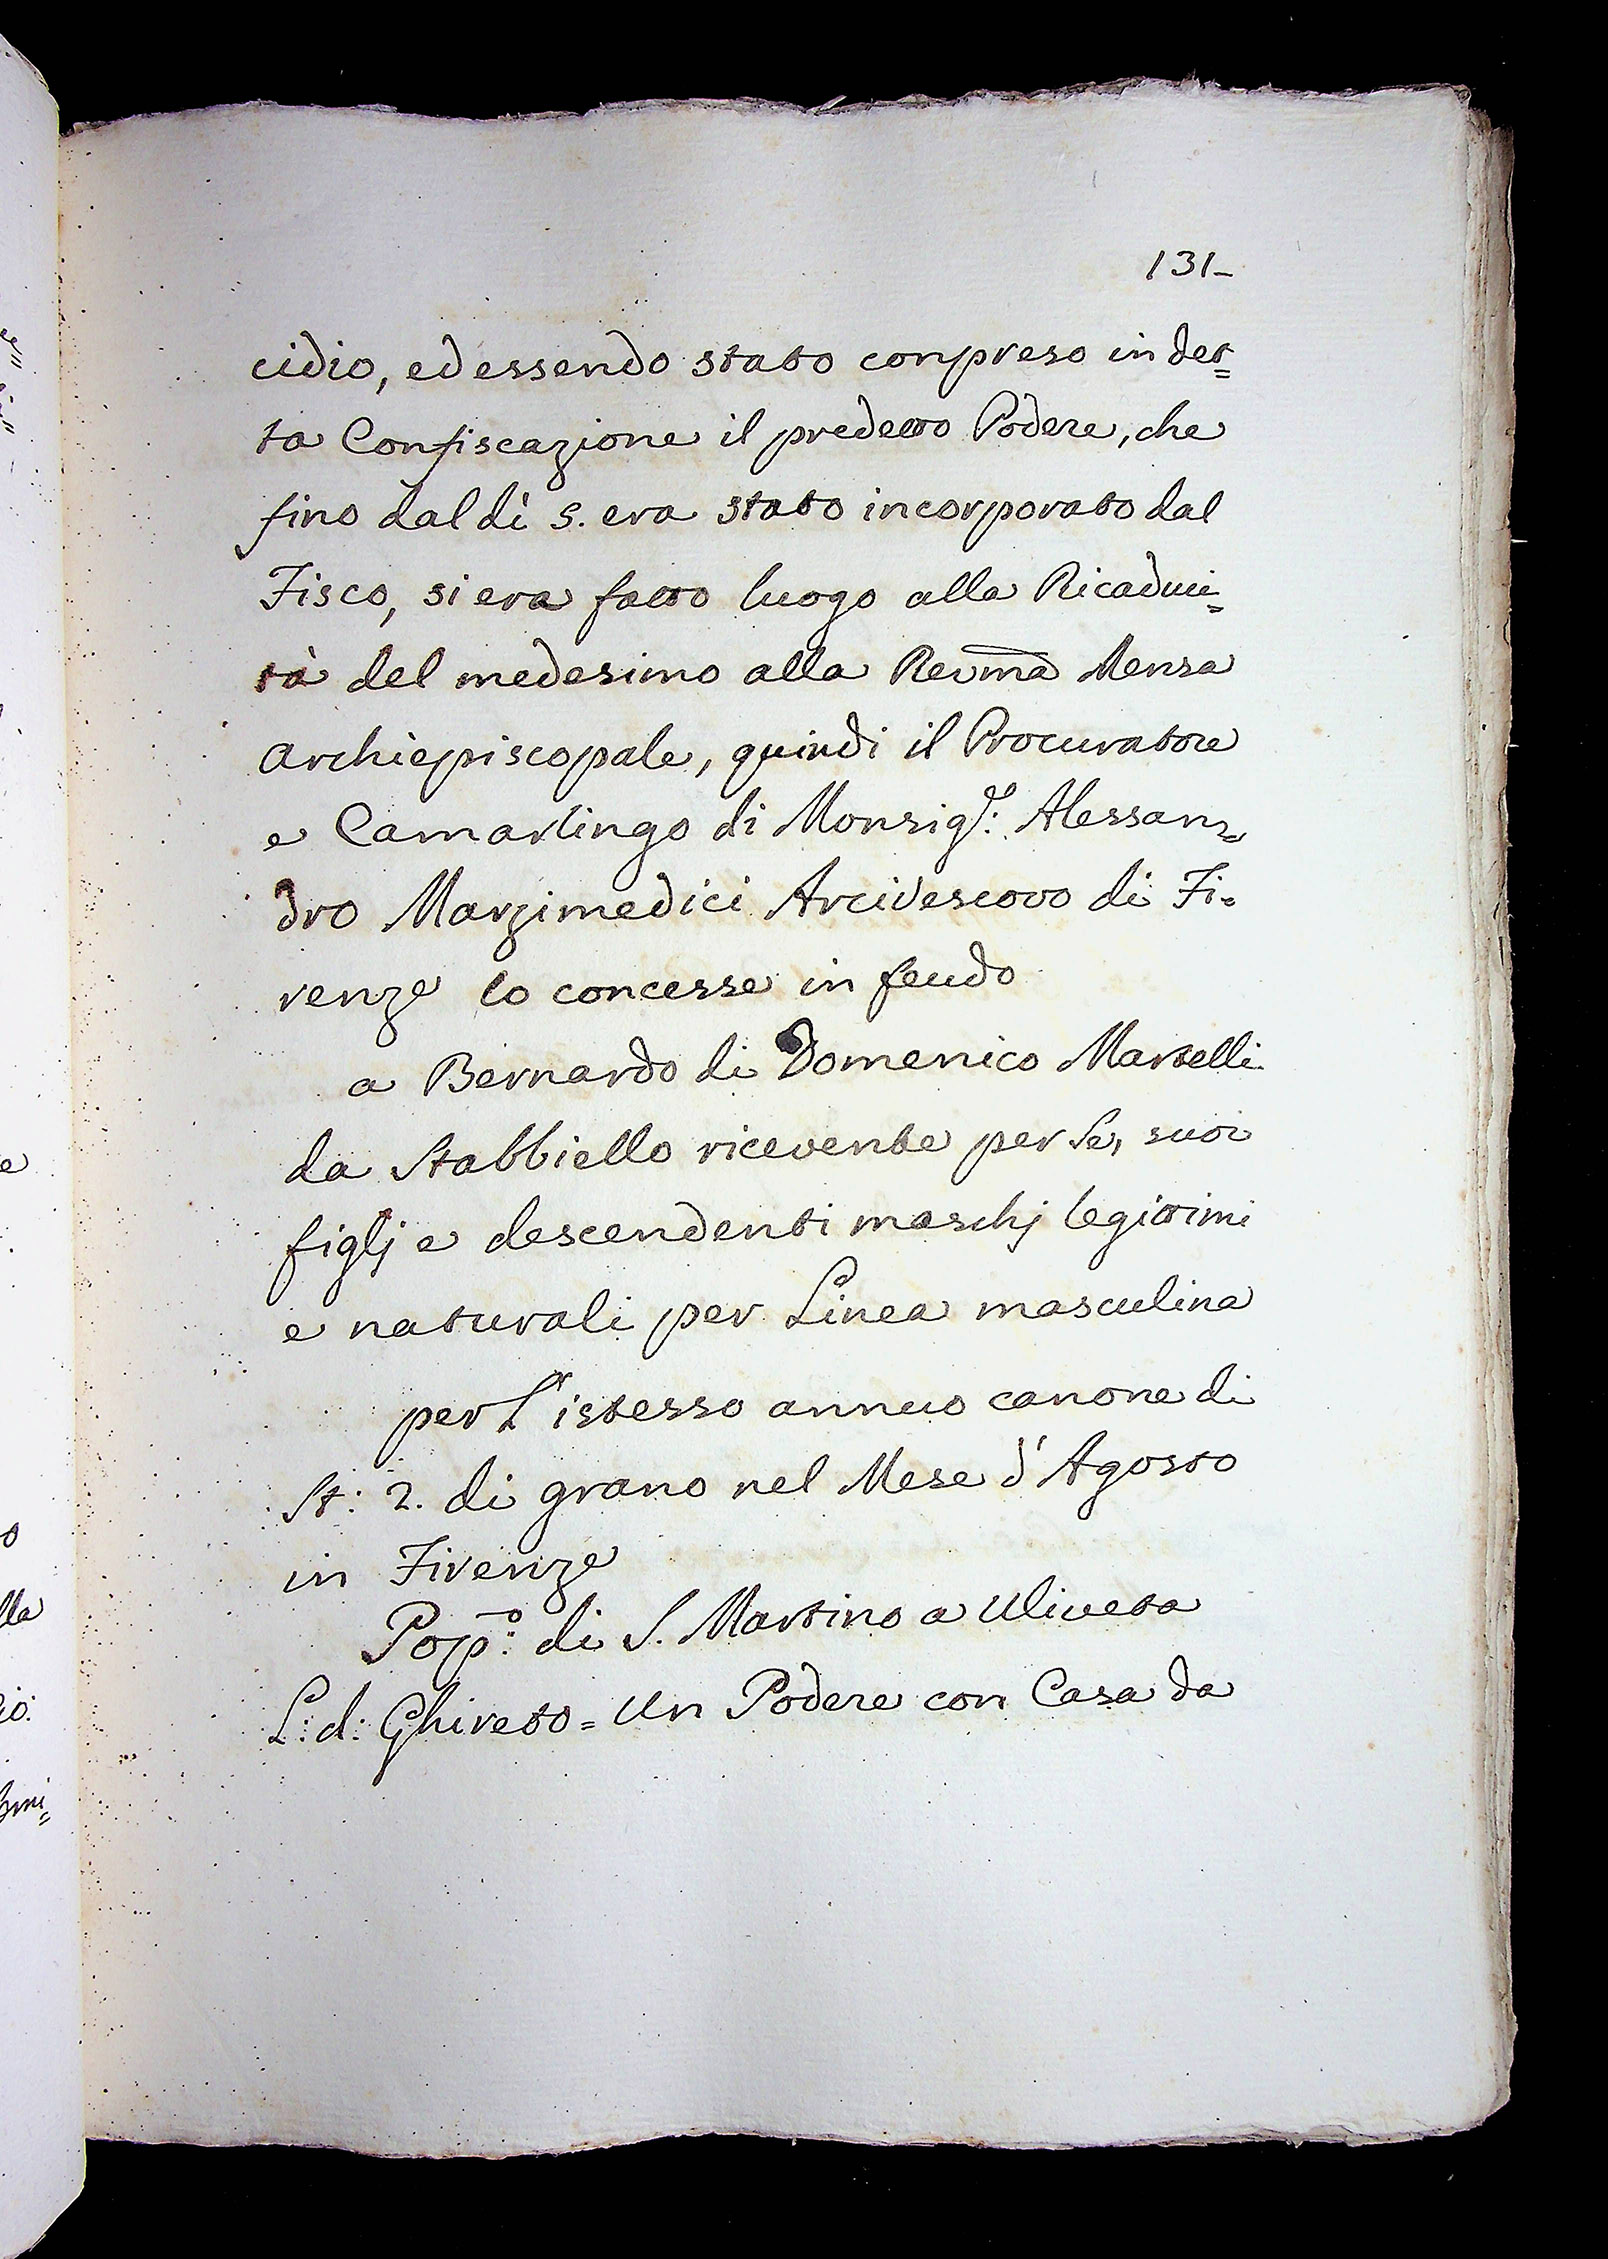 131-
cidio, ed essendo stato conpreso in det=
ta Confiscazione il predetto Podere, che
fino dal dì 5. era stato incorporato dal
Fisco, si era fatto luogo alla Ricaduci=
tà del medesimo alla Reuma Mensa
Archiepiscopale, quindi il Procuratore
e Camarlingo di Monsig.r: Alessan=
dro Marzimedici Arcivescovo di Fi=
renze lo concesse in feudo
a Bernardo di Domenico Martelli
da Stabbiello ricevente per Se, suoi
figlj e descendenti maschj legittimi
e naturali per Linea masculina
per L'istesso annuo canone di
St: 2. di grano nel Mese d'Agosto
in Firenze
Pop.o: di S. Martino a Uliveta
L: d: Ghireto = Un Podere con Casa da